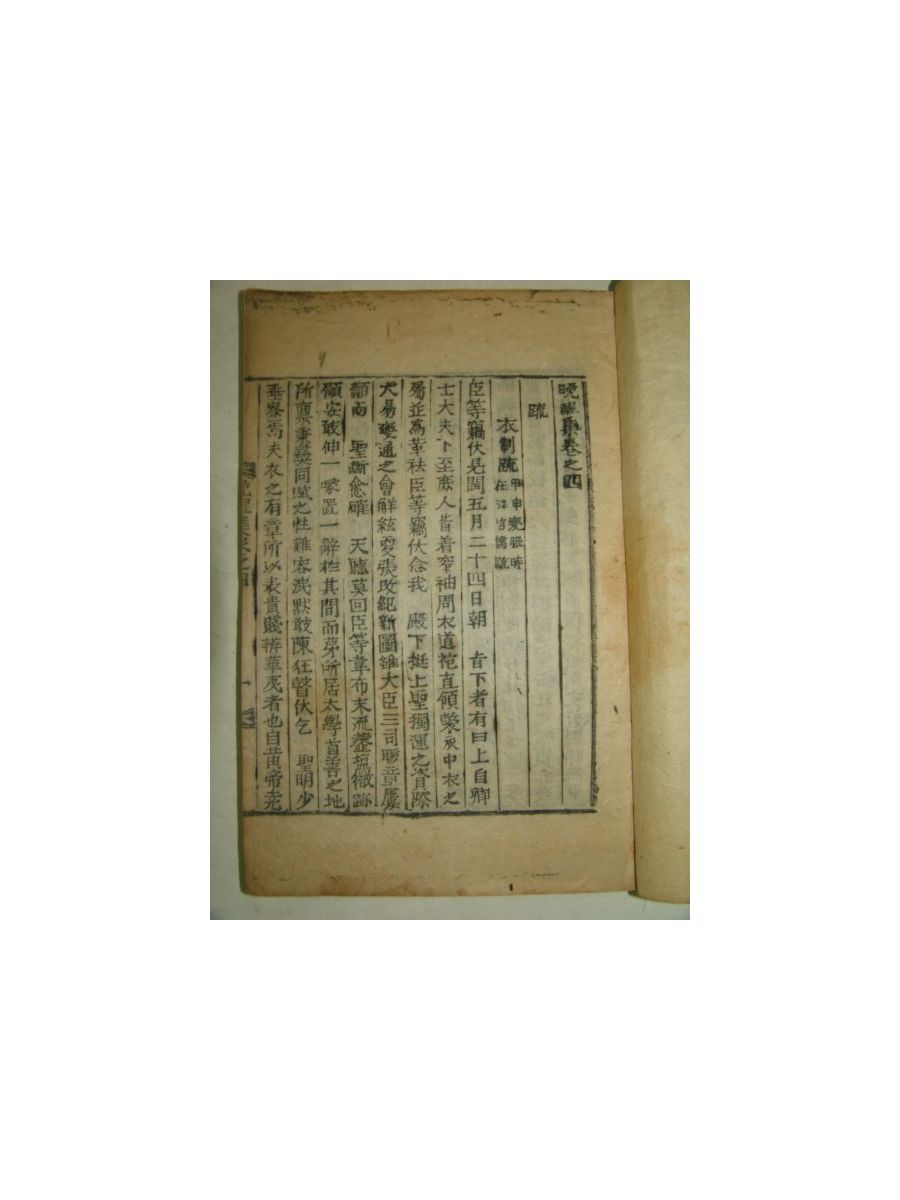 晩醒集卷之四
疏
衣制疏 甲申變服時
在泮宮篇疏
臣等竊伏見閏五月二十四日朝 旨下者有曰上自卿
士大夫下至庶人皆着窄袖周衣道袍直領氅衣中衣之
屬並爲革祛臣等竊伏念我 殿下挺上聖獨運之資際
大易變通之會解絃更張改紀新圖雖大臣三司聯章屢
籲而 聖斷愈確 天聽莫回臣等韋布末流虀塩微跡
顧安敢伸一喙置一辭於其間而第所居太學首善之地
所禀秉彛同賦之性難容泯默敢陳狂瞽伏乞 聖明少
垂察焉夫衣之有章所以表貴賤辨華夷者也自黄帝尭
晩醒集卷之四 一